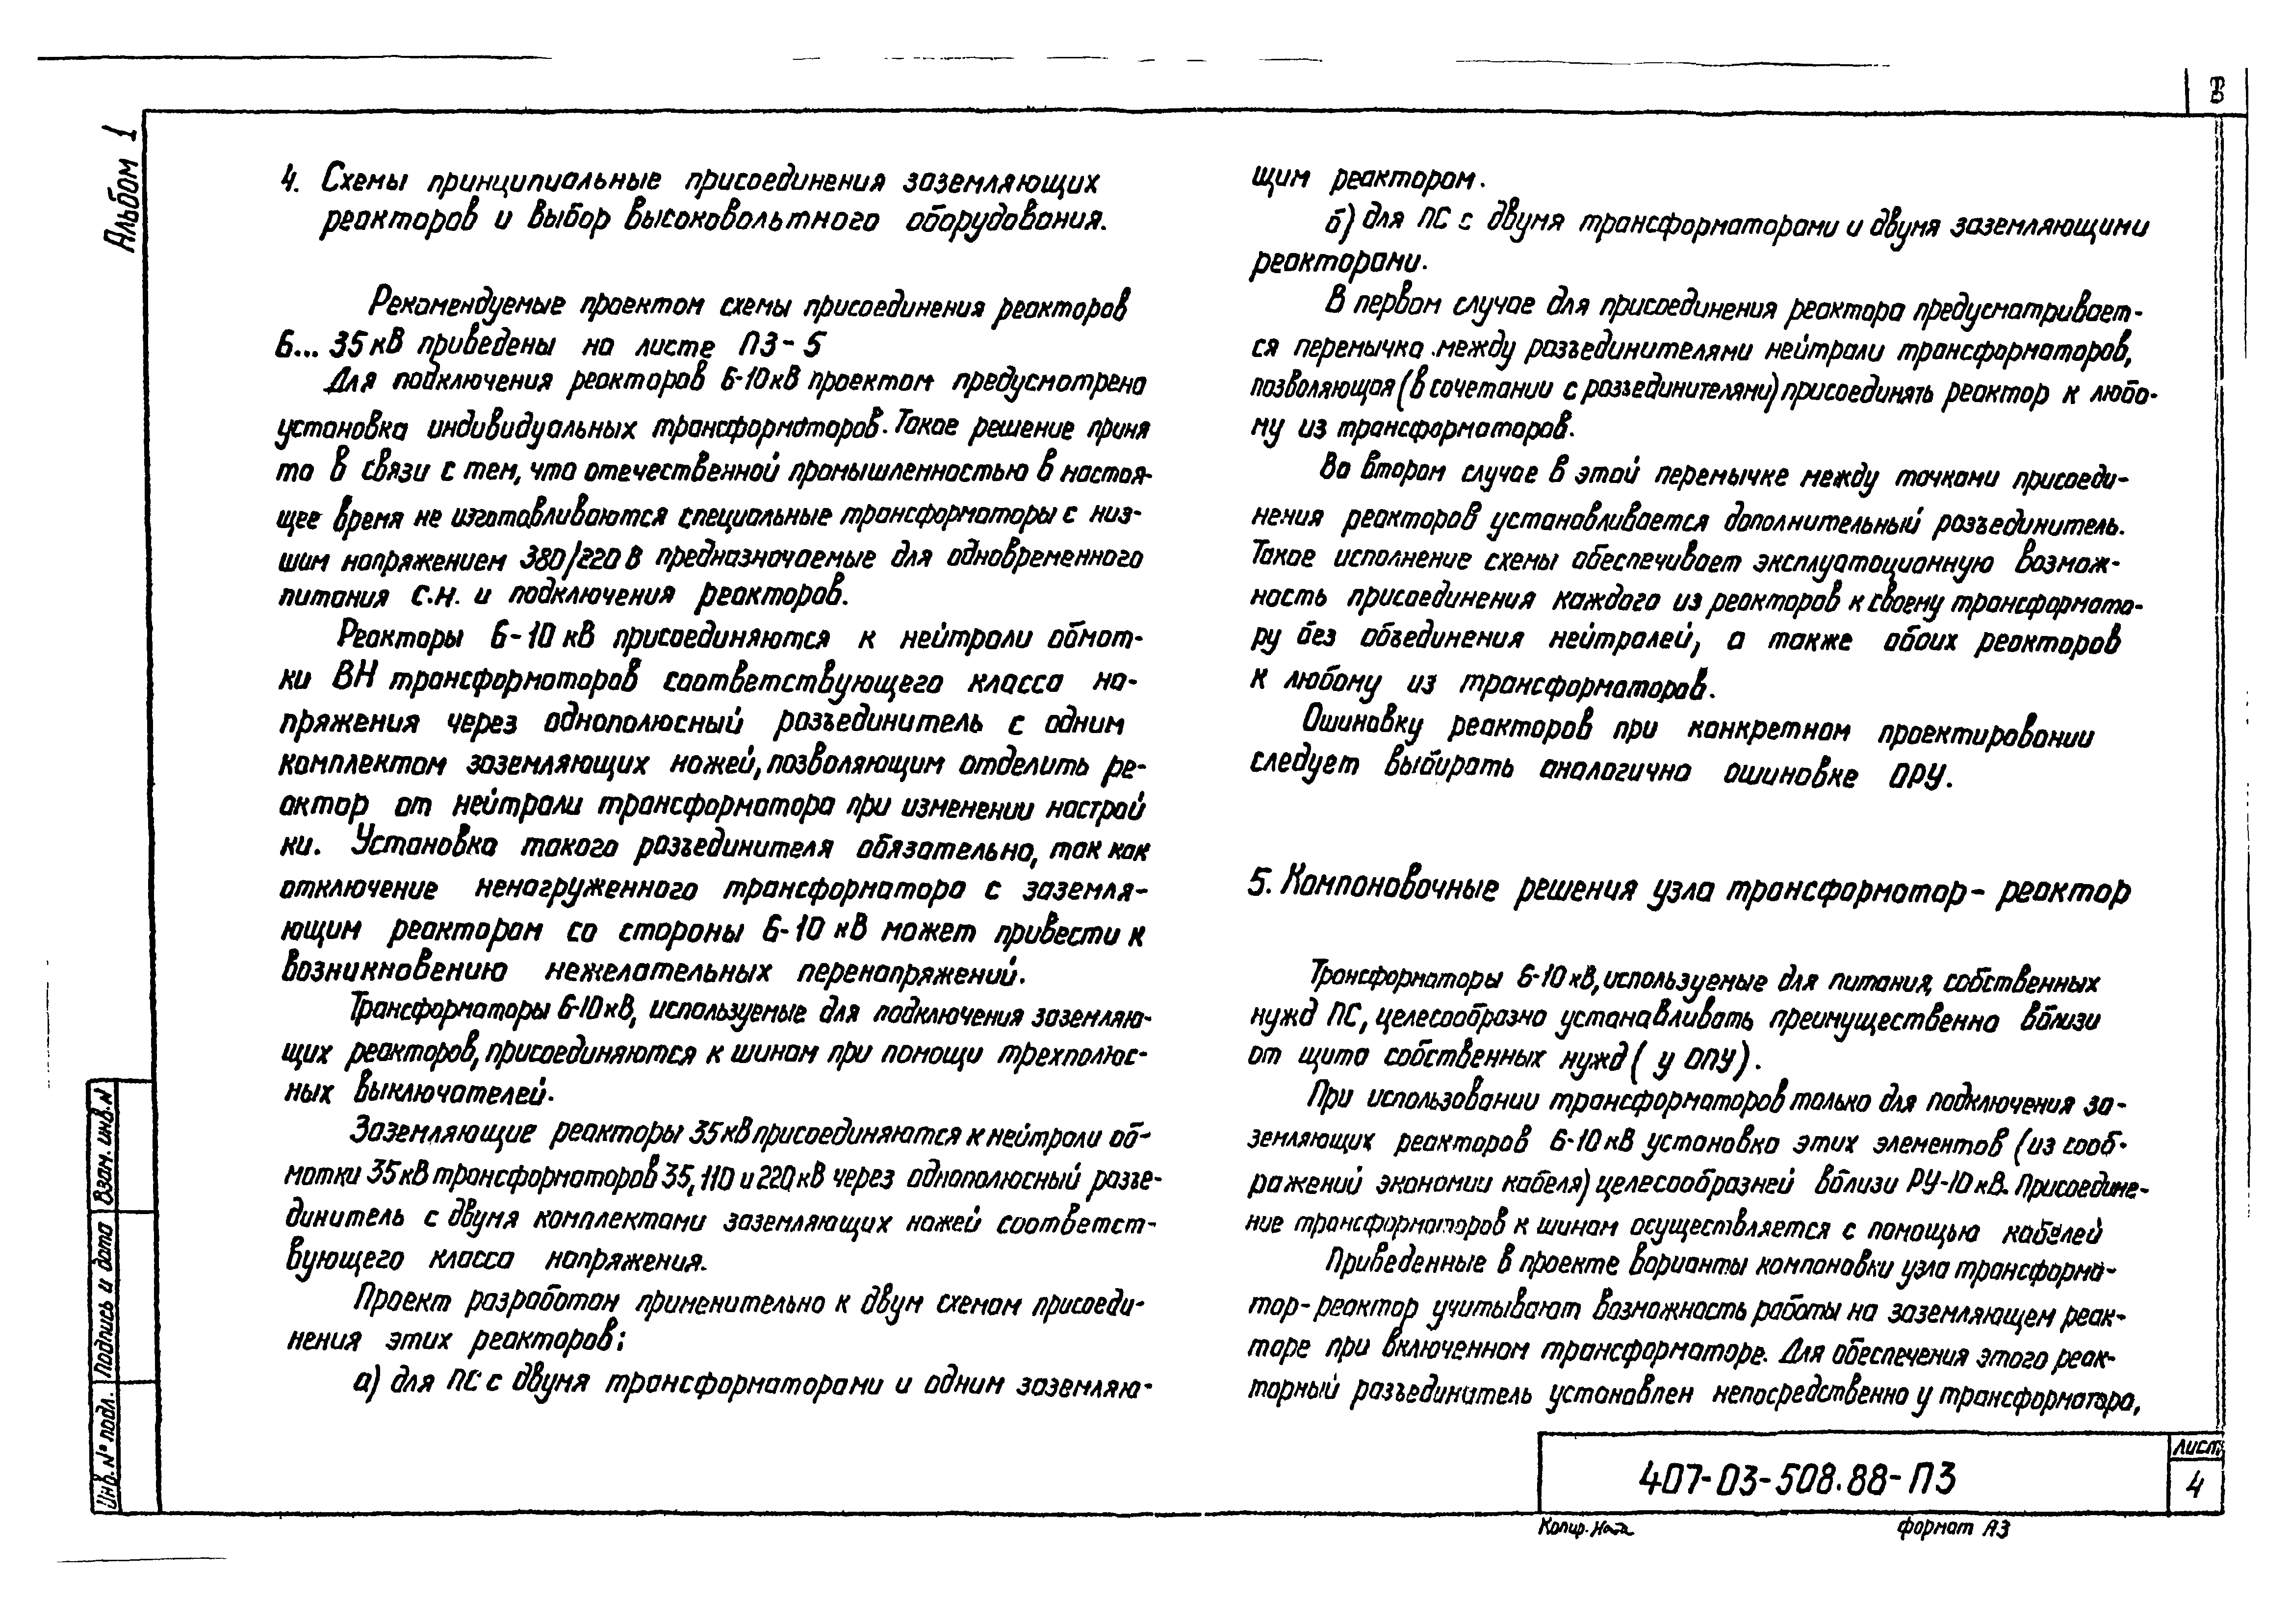 Альбом 1
4. Схемы принципиальные присоединения заземляющих
реакторов и выбор высоковольтного оборудования.
Рекомендуемые проектом схемы присоединения реакторов
6... 35 кВ приведены на листе ПЗ-5
Для подключения реакторов 6-10 кВ проектом предусмотрена
установка индивидуальных трансформаторов. Такое решение приня
то в связи с тем, что отечественной промышленностью в настоя-
щее время не изготавливаются специальные трансформаторы с низ-
шим напряжением 380/220 В предназначаемые для одновременного
питания с.н. и подключения реакторов.
Реакторы 6-10 кВ присоединяются к нейтрали обмот-
ки ВН трансформаторов соответствующего класса на-
пряжения через однополюсный разъединитель с одним
комплектом заземляющих ножей, позволяющим отделить ре-
актор от нейтрали трансформатора при изменении настрой
ки. Установка такого разъединителя обязательно, так как
отключение ненагруженного трансформатора с заземля-
ющим реактором со стороны 6-10 кВ может привести к
возникновению нежелательных перенапряжений.
Трансформаторы 6-10 кВ, используемые для подключения заземляю-
щих реакторов, присоединяются к шинам при помощи трехполюс-
ных выключателей.
Заземляющие реакторы 35 кВ присоединяются к нейтрали об-
мотки 35 кВ трансформаторов 35, 110 и 220 кВ через однополюсный разъе-
динитель с двумя комплектами заземляющих ножей соответст-
вующего класса напряжения.
Проект разработан применительно к двум схемам присоеди-
нения этих реакторов:
а) для ПС с двумя трансформаторами и одним заземляю-
щим реактором.
б) для ПС с двумя трансформаторами и двумя заземляющими
реакторами.
В первом случае для присоединения реактора предусматривает-
ся перемычка между разъединителями нейтрали трансформаторов,
позволяющая (в сочетании с разъединителями) присоединять реактор к любо-
му из трансформаторов.
Во втором случае в этой перемычке между точками присоеди-
нения реакторов устанавливается дополнительный разъединитель.
Такое исполнение схемы обеспечивает эксплуатационную возмож-
ность присоединения каждого из реакторов к своему трансформато-
ру без объединения нейтралей, а также обоих реакторов
к любому из трансформаторов.
Ошиновку реакторов при конкретном проектировании
следует выбирать аналогично ошиновке ОРУ.
5. Компоновочные решения узла трансформатор- реактор
Трансформаторы 6-10 кВ, используемые для питания собственных
нужд ПС, целесообразно устанавливать преимущественно вблизи
от щита собственных нужд ( у ОПУ).
При использовании трансформаторов только для подключения за-
земляющих реакторов 6-10 кВ установка этих элементов (из сооб-
ражений экономии кабеля) целесообразней вблизи РУ-10 кВ. Присоедине-
ние трансформаторов к шинам осуществляется с помощью кабелей
Приведенные в проекте варианты компоновки узла трансформа-
тор-реактор учитывают возможность работы на заземляющем реак-
торе при включенном трансформаторе. Для обеспечения этого реак-
торный разъединитель установлен непосредственно у трансформатора,
Инв. № подл. Подпись и дата Взам. инв. N
407-03-508.88-ПЗ
Лист
4
Копир.
формат А3